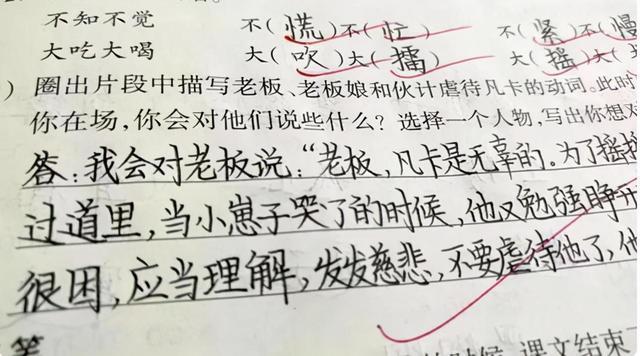 不知不觉 不(慌)不(忙) 不(紧)不(慢
大吃大喝 大(吹)大(擂) 大(摇)大(
)圈出片段中描写老板、老板娘和伙计虐待凡卡的动词。此时
你在场,你会对他们说些什么?选择一个人物,写出你想对
答:我会对老板说:“老板,凡卡是无辜的。为了摇摇
过道里,当小崽子哭了的时候,他又勉强睁开
很困,应当理解,发发慈悲,不要虐待他了,他
答
的时候,课文结束